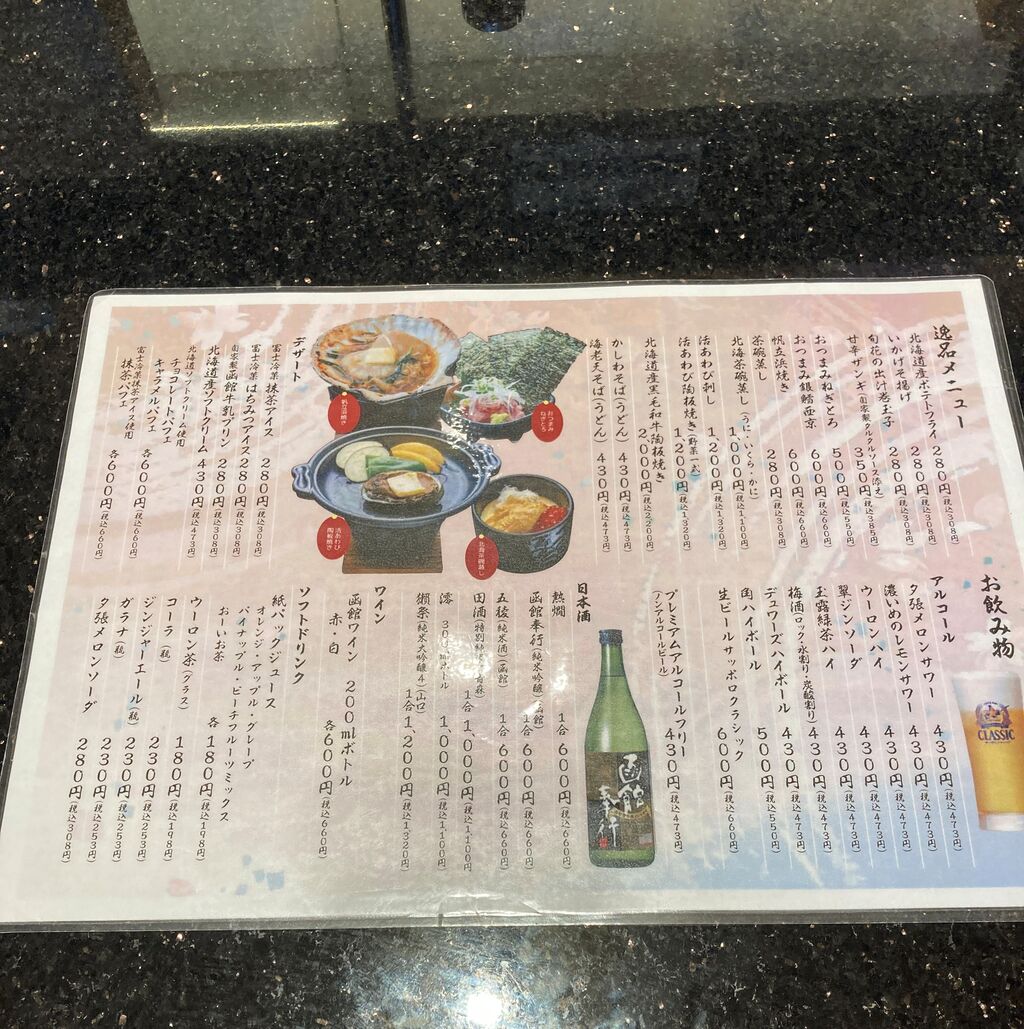 逸品メニュー
北海道産ポテトフライ 280円(税込308円)
いかげそ揚げ 280円(税込308円)
旬花の出汁巻玉子 280円(税込308円)
甘辛ザンギ(自家製タルタルソース添え) 350円(税込385円)
おつまみねぎとろ 500円(税込550円)
おつまみ銀鱈西京 600円(税込660円)
帆立浜焼き 600円(税込660円)
茶碗蒸し 280円(税込308円)
北海茶碗蒸し(うに・いくら・かに) 1,000円(税込1,100円)
活あわび刺し 1,200円(税込1,320円)
活あわび陶板焼き(野菜一式) 1,200円(税込1,320円)
北海道産黒毛和牛陶板焼き 2,000円(税込2,200円)
かしわそば(うどん) 430円(税込473円)
海老天そば(うどん) 430円(税込473円)
おつまみねぎとろ
帆立浜焼き
北海茶碗蒸し
活あわび陶板焼き
デザート
富士冷菓 抹茶アイス 280円(税込308円)
富士冷菓 はちみつアイス 280円(税込308円)
自家製函館牛乳プリン 280円(税込308円)
北海道産ソフトクリーム 430円(税込473円)
北海道ソフトクリーム使用
チョコレートパフェ
キャラメルパフェ 各600円(税込660円)
富士冷菓抹茶アイス使用
抹茶パフェ 各600円(税込660円)
お飲み物
アルコール
夕張メロンサワー 430円(税込473円)
濃いめのレモンサワー 430円(税込473円)
ウーロンハイ 430円(税込473円)
翠ジンソーダ 430円(税込473円)
玉露緑茶ハイ 430円(税込473円)
梅酒(ロック・水割り・炭酸割り) 430円(税込473円)
デュワーズハイボール 500円(税込550円)
角ハイボール 430円(税込473円)
生ビールサッポロクラシック 600円(税込660円)
プレミアムアルコールフリー 430円(税込473円)
(ノンアルコールビール)
CLASSIC
函館奉行
日本酒
熱燗 1合 600円(税込660円)
函館奉行(純米吟醸)(函館) 1合 600円(税込660円)
五稜(純米酒)(函館) 1合 600円(税込660円)
田酒(特別純米)(青森) 1合 1,000円(税込1,100円)
澪 300mlボトル 1,000円(税込1,100円)
獺祭(純米大吟醸4)(山口) 1合 1,200円(税込1,320円)
ワイン
函館ワイン 200mlボトル
赤・白 各600円(税込660円)
ソフトドリンク
紙パックジュース
オレンジ・アップル・グレープ
パイナップル・ピーチフルーツミックス
おーいお茶 各180円(税込198円)
ウーロン茶(グラス) 180円(税込198円)
コーラ(瓶) 230円(税込253円)
ジンジャーエール(瓶) 230円(税込253円)
ガラナ(瓶) 230円(税込253円)
夕張メロンソーダ 280円(税込308円)